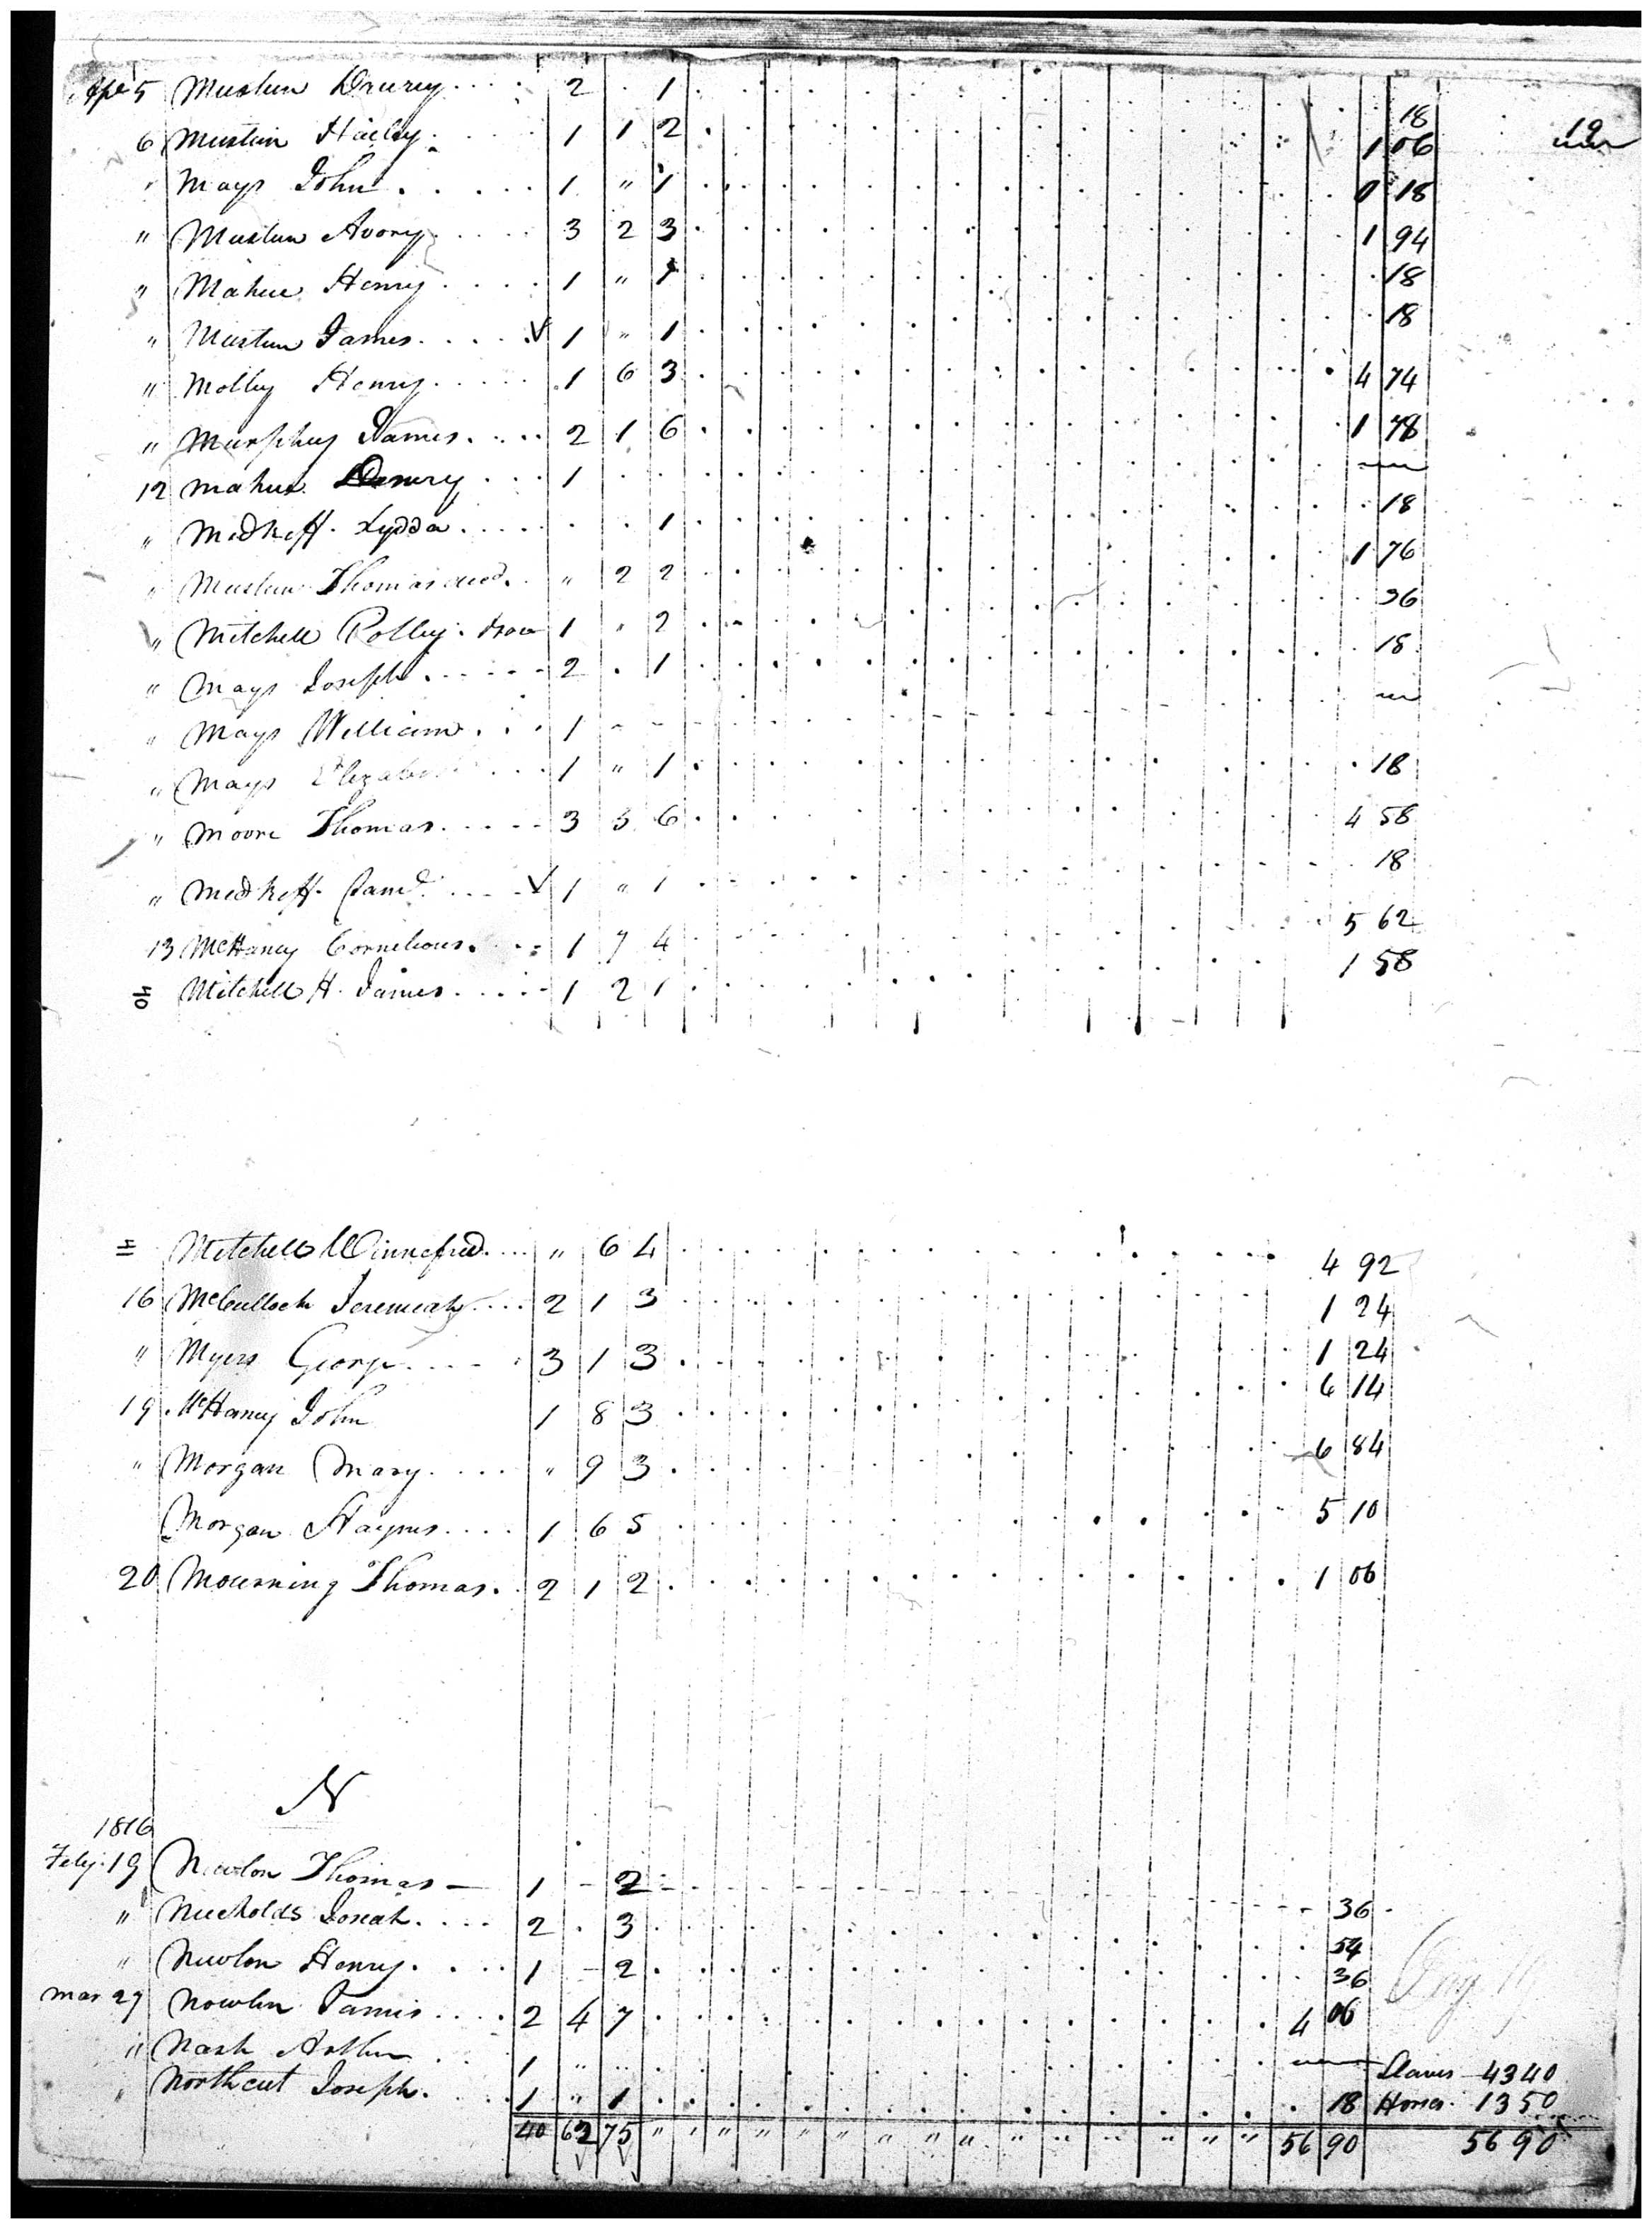 Apl 5 Mustin Drury 2 . 1 18
6 Mustin Hailey 1 1 2 1 06 19
Mays John 1 " 1 0 18
" Mustin Avory 3 2 3 1 94
" Mahue Henry 1 " 1 18
" Mustin James V 1 " 1 18
" Molley Henry 1 6 3 4 74
" Murphey James 2 1 6 1 78
12 Mahue 1
" Medkeff Lydda 1 18
" Mustin Thomas decd. " 2 2 1 76
" Mitchell Polley 1 " 2 36
" Mays Joseph 2 . 1 18
" Mays William 1 -
" Mays Elizabeth 1 " 1 18
" Moore Thomas 3 5 6 4 58
" Medkeff V 1 " 1 18
13 McHaney Cornelious 1 7 4 5 62
Mitchell H. James 1 2 1 1 58
Mitchell Winnefred " 6 4 4 92
16 McCulloch Jeremiah 2 1 3 1 24
" Myers George 3 1 3 1 24
19 McHaney John 1 8 3 6 14
" Morgan Mary " 9 3 6 84
Morgan Haynes 1 6 5 5 10
20 Mourning Thomas 2 1 2 1 06
N
1816
Feby. 19 Newlon Thomas 1 - 2 36
" Nucholds Josiah 2 . 3 54
" Newlon Henry 1 - 2 36
Mar 27 Nowlin James 2 4 7 4 06
" Nash Arthur 1 " Slaves 43 40
" Northcut Joseph 1 " 1 18 Horses 13 50
40 62 75 " " " " " " " " " " " " " " " 56 90 56 90